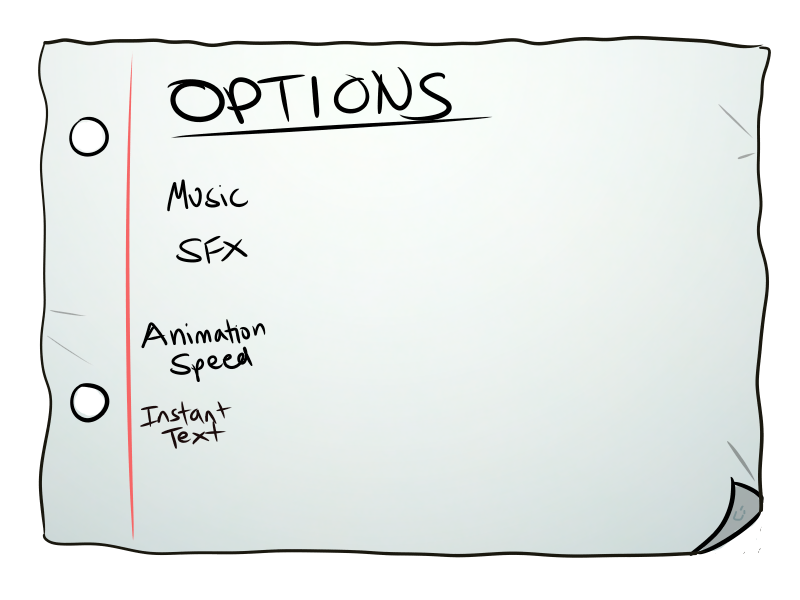 OPTIONS
Music
SFX
Animation
Speed
Instant
Text